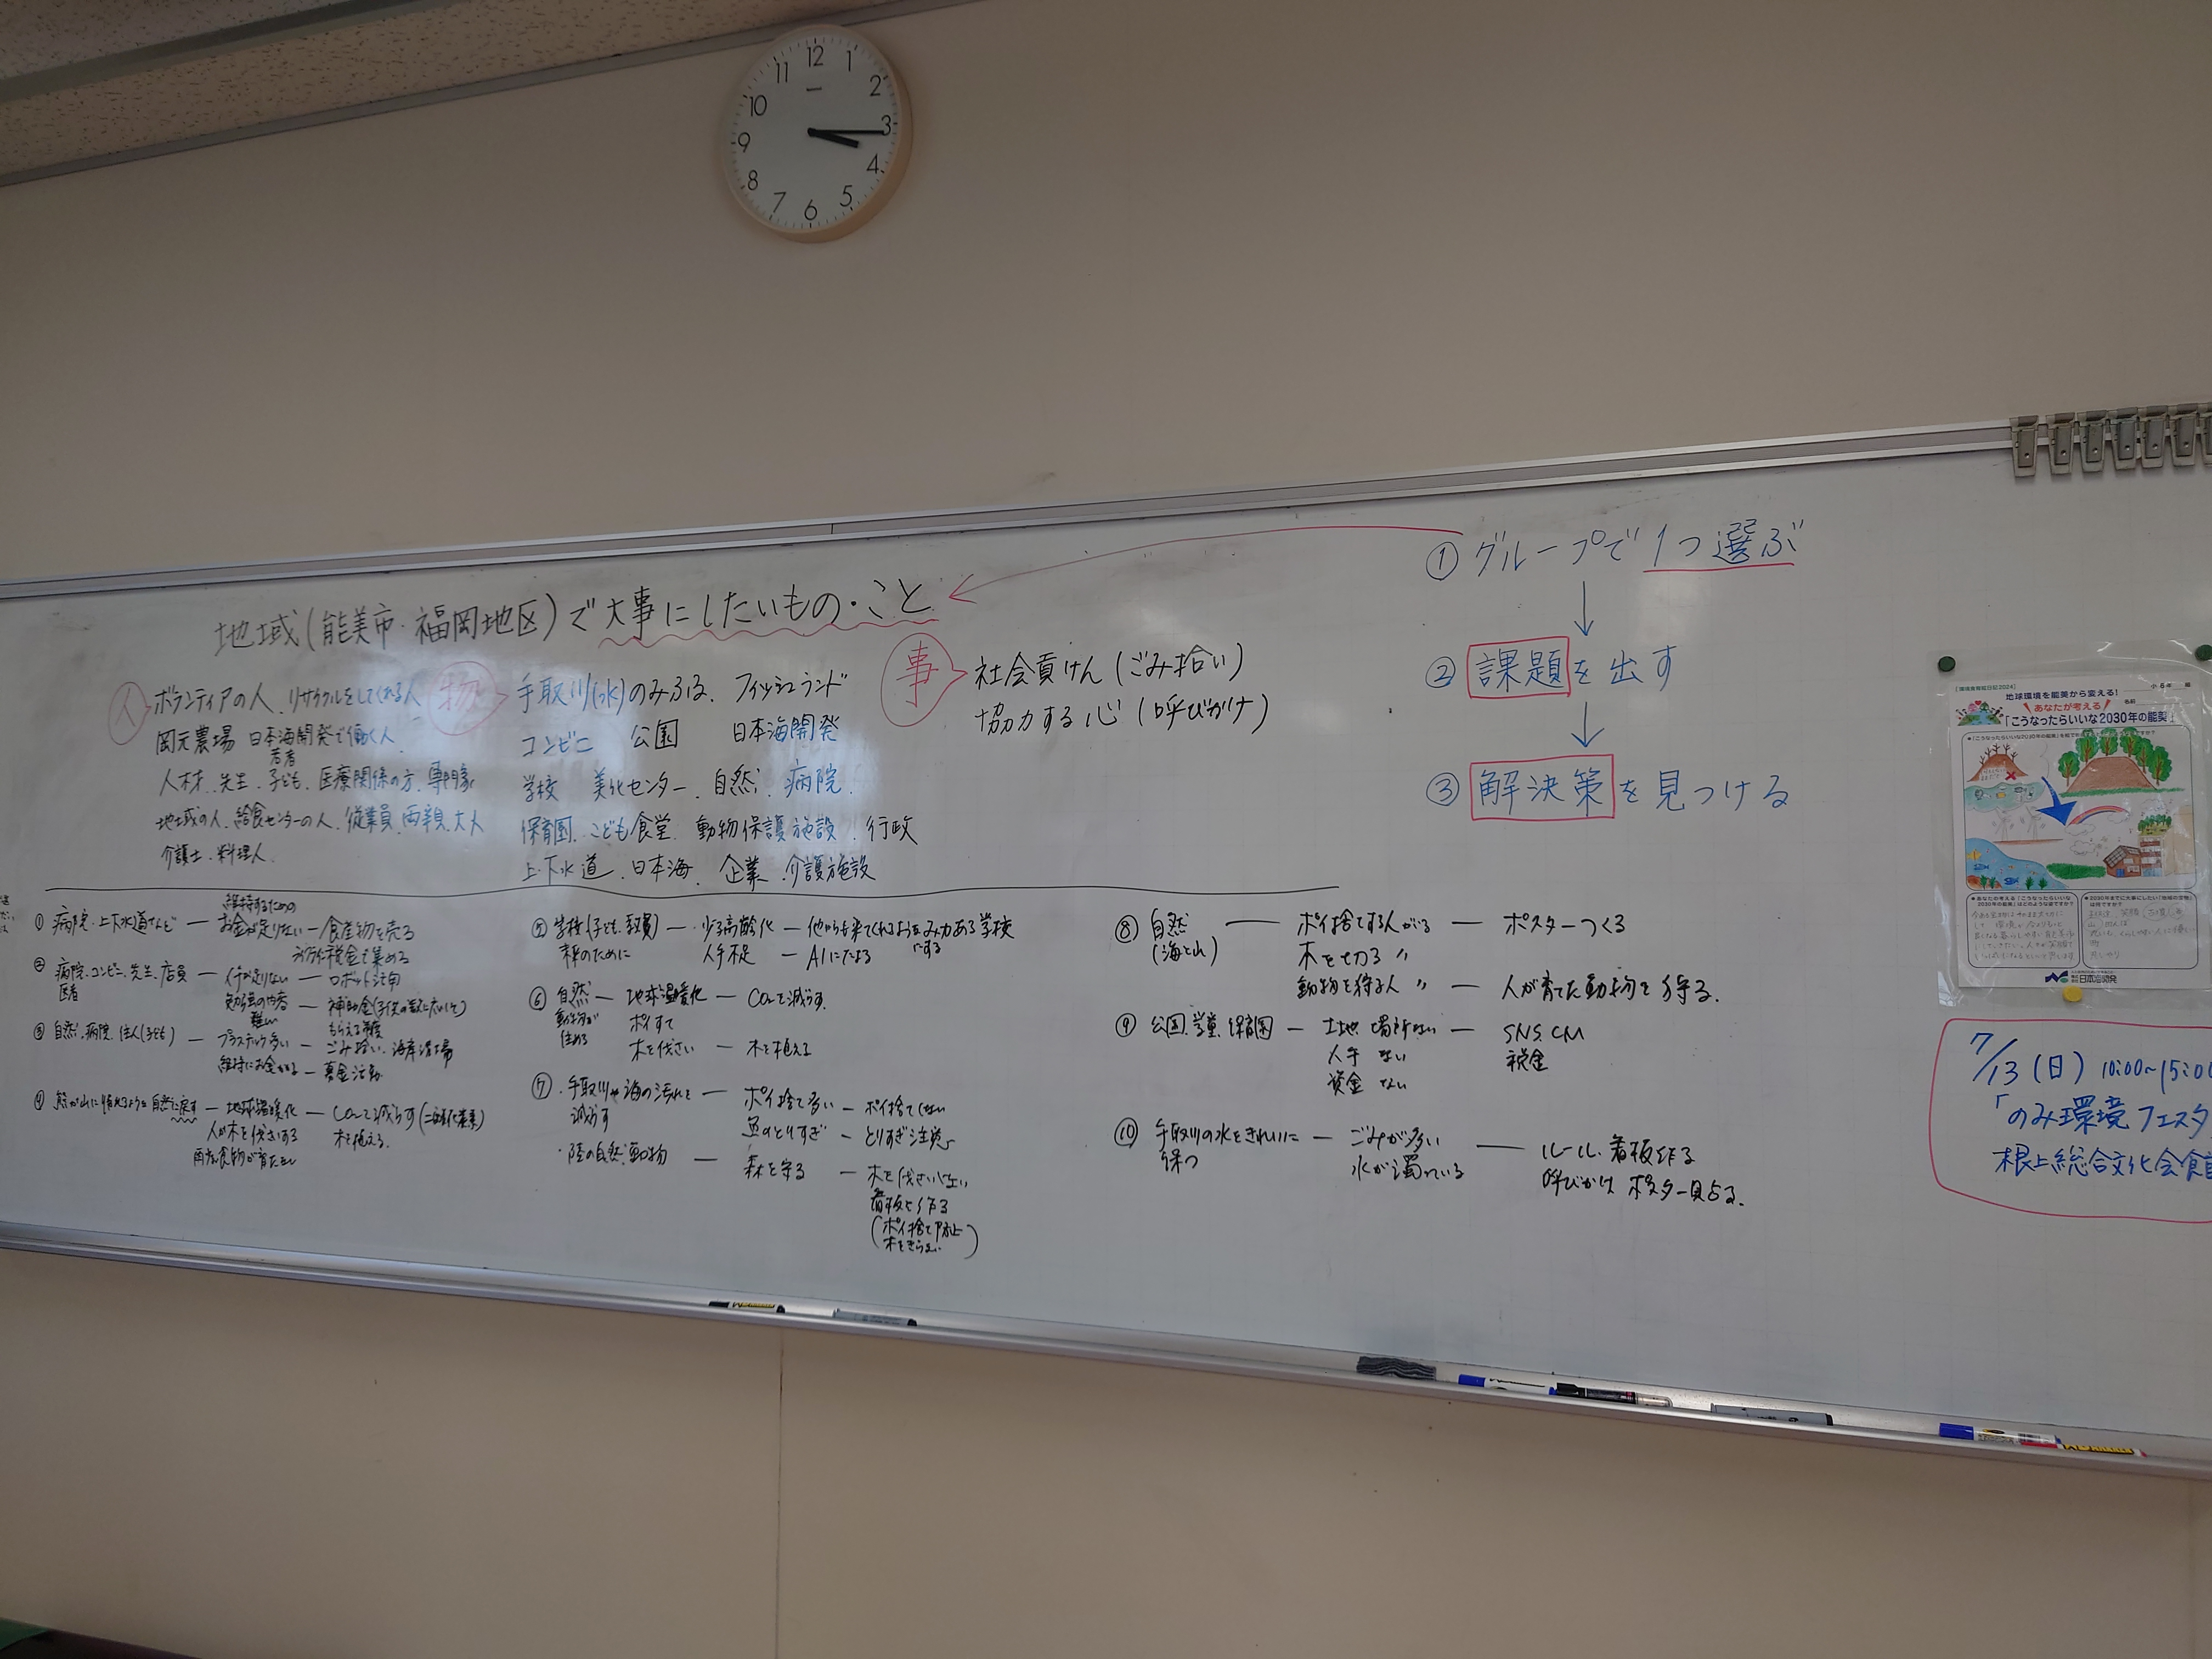 12 1 2 3 4 5 6 7 8 9 10 11
地域(能美市・福岡地区)で大事にしたいもの・こと
人
ボランティアの人、リサイクルをしてくれる人
岡元農場 日本海開発で働く人
若者
人材、先生、子ども、医療関係の方、専門家
地域の人、給食センターの人、従業員、両親、大人
介護士、料理人
物
手取川(水)のみふる、フィッシュランド
コンビニ 公園 日本海開発
学校 美化センター、自然、病院、
保育園、こども食堂、動物保護施設、行政
上・下水道、日本海、企業、介護施設
事
社会貢けん(ごみ拾い)
協力する心(呼びかけ)
① グループで1つ選ぶ
↓
② 課題を出す
↓
③ 解決策を見つける
① 病院・上下水道など ー 維持するための
お金が足りない ー 食産物を売る
税金で集める
② 病院、コンビニ、先生、店員
医者
ー 人手が足りない ー ロボット活用
勉強の内容
難しい
ー 補助金
もらえる制度
③ 自然、病院、住人(子ども) ー プラスチック多い ー ごみ拾い、海岸清掃
維持にお金かかる ー 募金活動
④ 熊が山に帰れるように自然に戻す ー 地球温暖化 ー CO₂を減らす(二酸化炭素)
人が木を伐さいする 木を植える。
⑤ 学校(子ども、教員) ー 少子高齢化 ー 他からも来てくれるようなみ力ある学校
にする
のために 人手不足 ー AIにたよる
⑥ 自然 ー 地球温暖化 ー CO₂を減らす
動物が
住める
ポイすて
木を伐さい ー 木を植える
⑦ ・手取川や海の汚れを
減らす
ー ポイ捨て多い ー ポイ捨てしない
魚のとりすぎ ー とりすぎ注意
・陸の自然、動物 ー 森を守る ー 木を伐さいしない
看板を作る
(ポイ捨て防止
木をきらない)
⑧ 自然
(海と山)
ー ポイ捨てする人がいる ー ポスターつくる
木を切る 〃
動物を狩る人 〃 ー 人が育てた動物を狩る。
⑨ 公園、学童、保育園 ー 土地、場所ない ー SNS、CM
人手 ない 税金
資金 ない
⑩ 手取川の水をきれいに
保つ
ー ごみが多い
水が濁っている
ー ルール、看板作る
呼びかけ ポスター貼る。
地球環境を能美から変える!
あなたが考える
「こうなったらいいな2030年の能美」
小6年 組
名前
日本海開発
7/13(日) 10:00〜15:00
「のみ環境フェスタ
根上総合文化会館